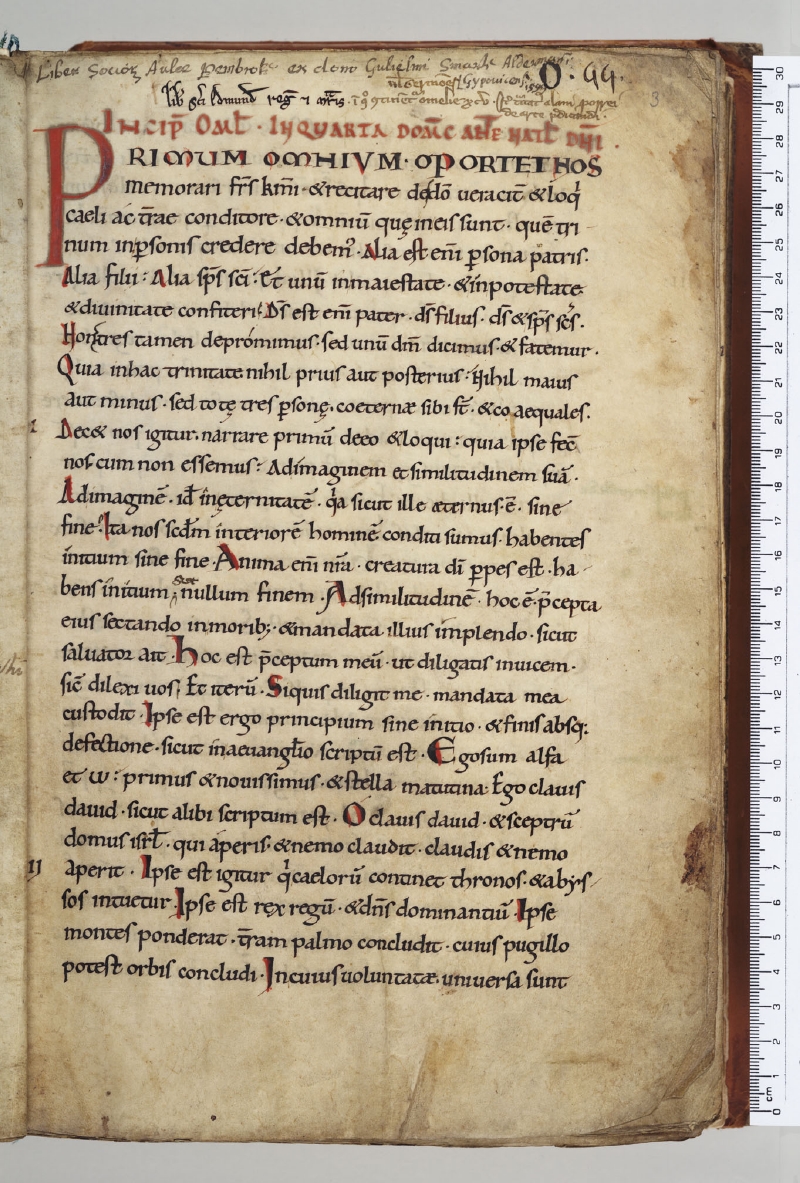 Liber Socioꝝ Aulæ Pembrok: ex dono Gulielmi Smarte Aldermani
Gypovicensis
O. 44.
3
Lib sc̄i Edmund reg̅ ⁊ m̅ris.
INCIP̅ OML̅. IN QUARTA DOMC̅ ANTE NATL̅ DNI.
PRIMUM OMNIUM OPORTET NOS
memorari frs̄ km̄i. & recitare de dō ueracit̄ & loq̄
caeli ac tr̄ae conditore. & omniū quę in eis sunt. quē tri
num in p̄sonis credere debem᷒. Alia est eni̅ p̄sona patris.
Alia filii. Alia sp̄s sc̄i. Et unū in maiestate. & in potestate
& diuinitate confiteri. D̄s est eni̅ pater. d̄s filius. d̄s & sp̄s sc̄s.
Non tres tamen depromimus. sed unū dm̄ dicimus. & fatemur.
Quia in hac trinitate nihil prius aut posterius. Nihil maius
aut minus. sed totę tres p̄sonę. coeternæ sibi st̄. & coaequales.
I
Dec& nos igitur. narrare primū de eo & loqui: quia ipse fec̄
nos cum non essemus. Ad imaginem et similitudinem suā.
Ad imaginē. id̄ in ęternitatē. q̄a sicut ille æternus ē. sine
fine. Ita nos scdm̄ interiorē hominē conditi sumus. habentes
initium sine fine. Anima eni̅ nr̄a. creatura di̅ p̄pes est. ha
bens initium nullum finem. Ad similitudinē. hoc ē. p̄cepta
eius sectando in morib; & mandata illius implendo. sicut
saluator ait. Hoc est p̄ceptum meū. ut diligatis inuicem.
sic̄ dilexi uos. Et iterū. Siquis diligit me. mandata mea
custodit. Ipse est ergo principium sine initio. & finis absq;
defectione. sicut in aeuangl̅io scriptū est. Ego sum alfa
et ω: primus & nouissimus. & stella matutina. Ego clauis
dauid. sicut alibi scriptum est. O clauis dauid. & sceptrū
domus isrl̄. qui aperis. & nemo claudit. claudis & nemo
II
aperit. Ipse est igitur q̄ caelorū continet thronos. & abys
sos intuetur. Ipse est rex regū. & dn̄s dominantiū. Ipse
montes ponderat. tr̄am palmo concludit. cuius pugillo
potest orbis concludi. In cuius uoluntatæ. uniuersa sunt